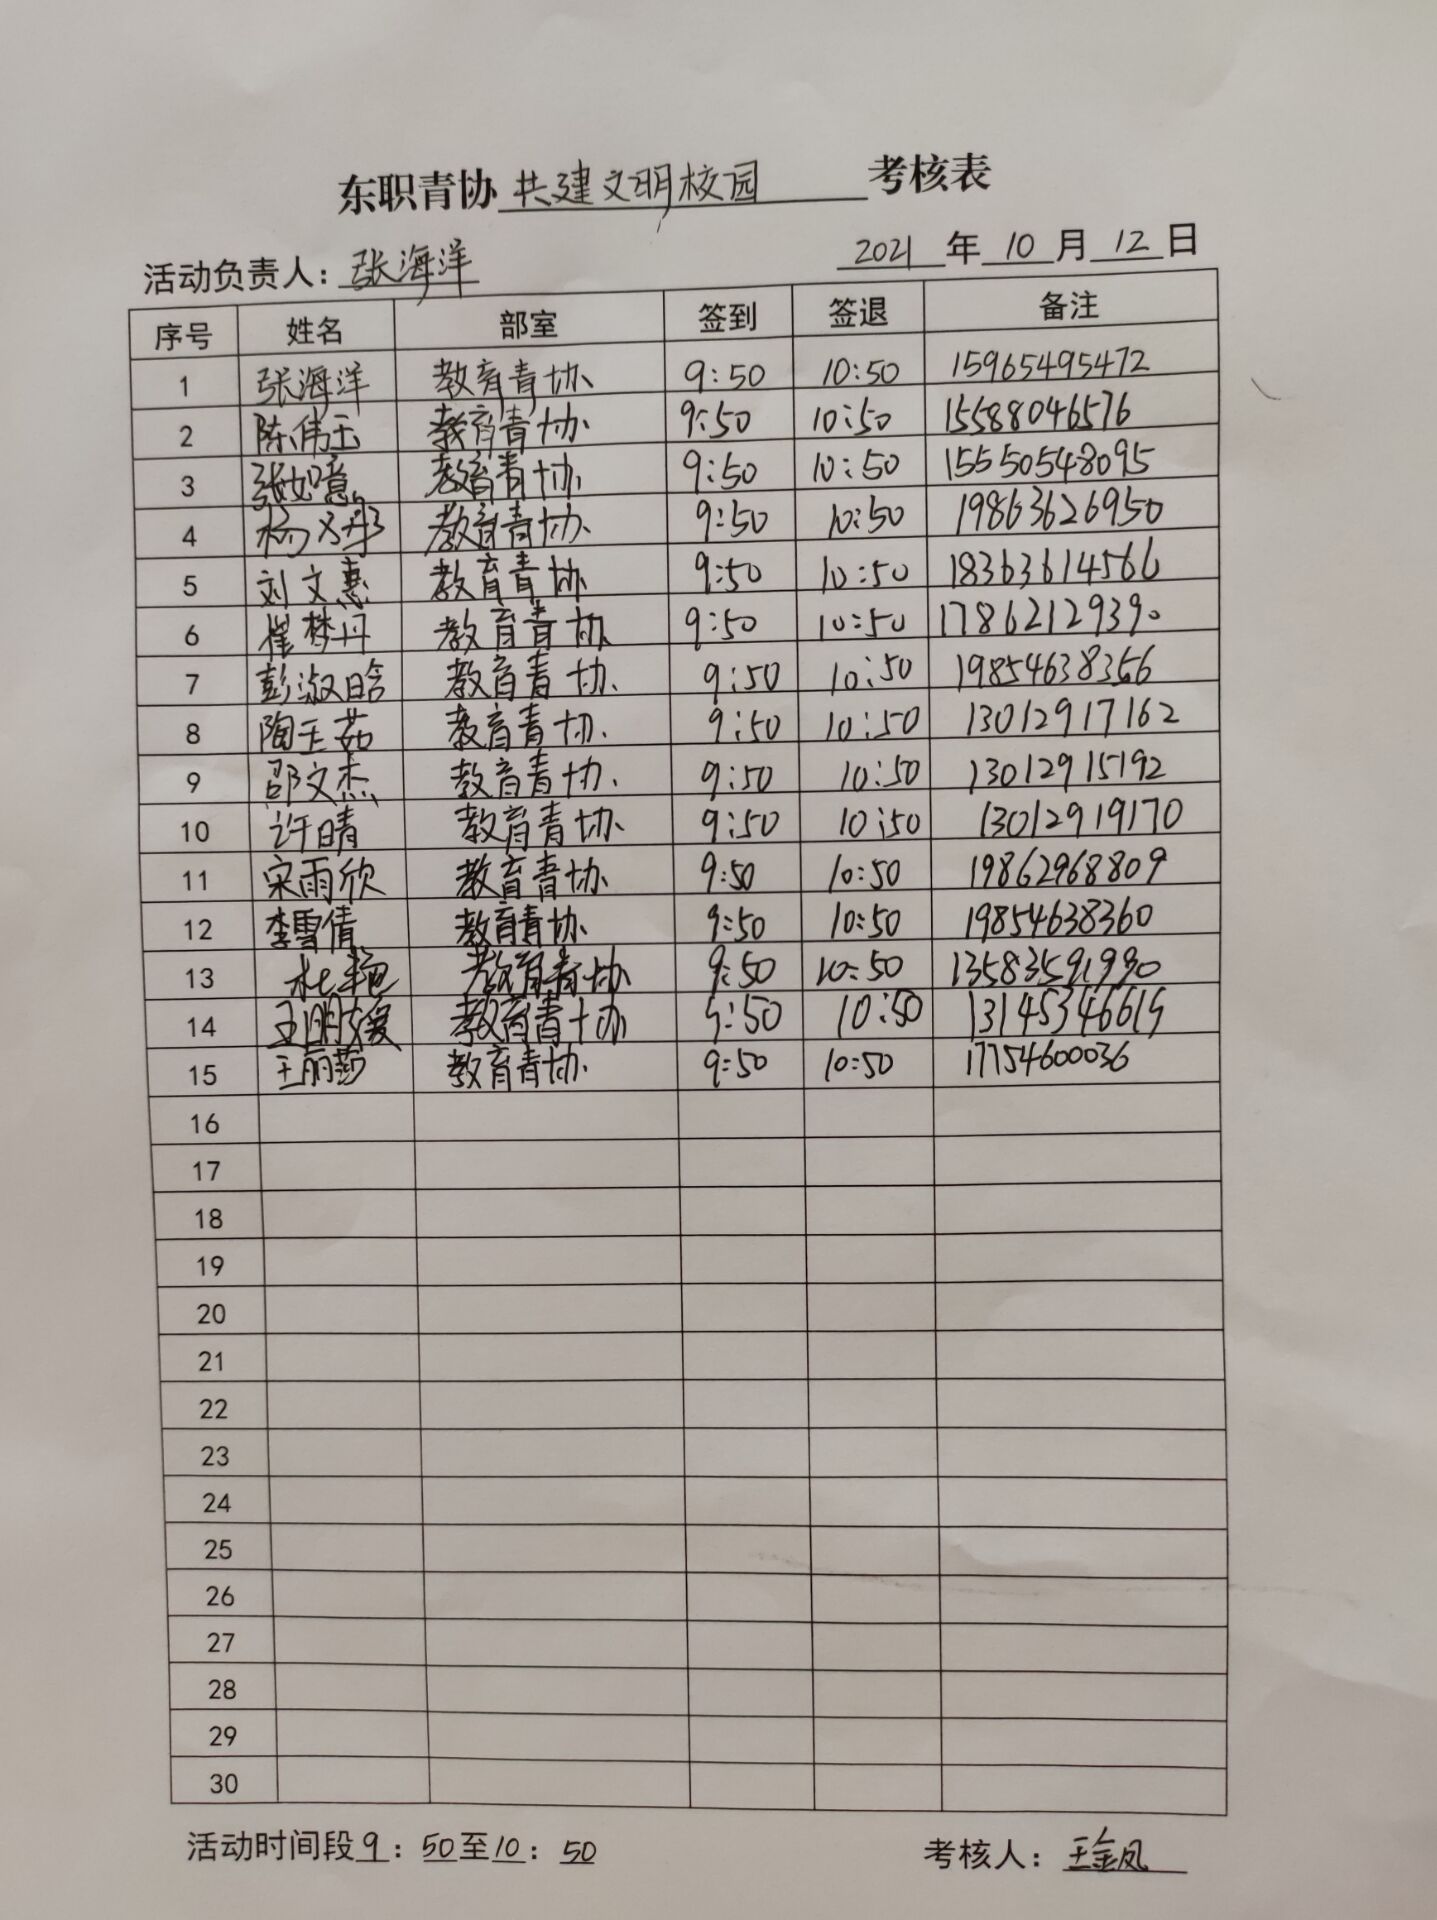 东职青协共建文明校园考核表
活动负责人：张海洋 2021年10月12日
序号 姓名 部室 签到 签退 备注
1 张海洋 教育青协 9:50 10:50 15965495472
2 陈伟玉 教育青协 9:50 10:50 15588046576
3 张如意 教育青协 9:50 10:50 15550548095
4 杨 教育青协 9:50 10:50 19863626950
5 刘文惠 教育青协 9:50 10:50 18363614566
6 崔梦丹 教育青协 9:50 10:50 17862129390
7 彭淑晗 教育青协 9:50 10:50 19854638366
8 陶玉茹 教育青协 9:50 10:50 13012917162
9 邵文杰 教育青协 9:50 10:50 13012915192
10 许晴 教育青协 9:50 10:50 13012919170
11 宋雨欣 教育青协 9:50 10:50 19862968809
12 李雪倩 教育青协 9:50 10:50 19854638360
13 杜艳 教育青协 9:50 10:50 13583591990
14 王明媛 教育青协 9:50 10:50 13145346619
15 王丽莎 教育青协 9:50 10:50 17754600036
16
17
18
19
20
21
22
23
24
25
26
27
28
29
30
活动时间段9：50至10：50 考核人：王金凤